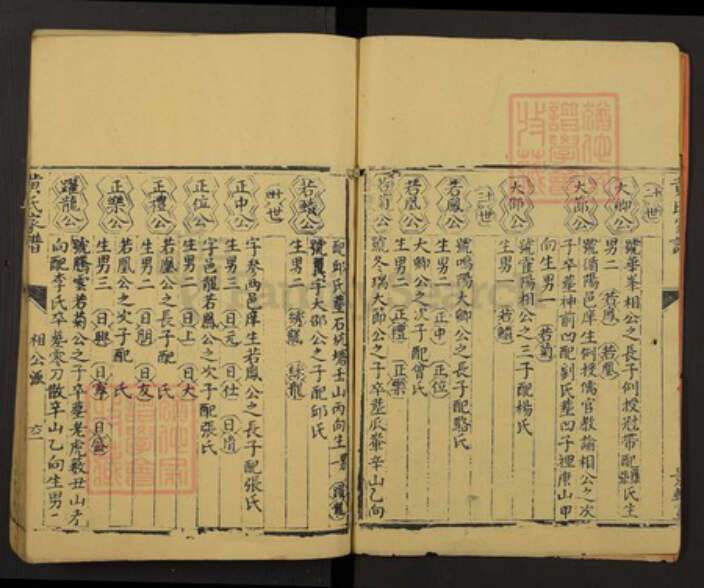 二十世
大卿公
號華峯相公之長子例授冠帶配張氏生
男二 若鳳 若凰
大節公
號循陽邑庠生例授儒官教諭相公之次
子卒塟神前凹配劉氏塟凹子裡庚山甲
向生男一 若菊
大節公
號崔陽相公之三子配楊氏
生男 若鱗
世
若鳳公
號鳴陽大卿公之長子配駱氏
生男二 正中 正位
若凰公
大卿公之次子配曾氏
生男二 正禮 正樂
若菊公
號冬瑞大節公之子卒塟瓜輋辛山乙向
配邱氏塟石坑塘壬山丙向生一男 躍龍
公
生男二
世
正中公
字參兩邑庠生若鳳公之長子配張氏
生男三 日元 日仕
正位公
字邑龍若鳳公之次子配張氏
生男二 日上 日大
正禮公
若凰公之長子配 氏
生男二 日朋 日友
正樂公
若凰公之次子配 氏
生男三 日興
躍龍公
號騰雲若菊公之子卒塟老虎藪丑山
向配李氏卒塟寒刀散辛山乙向生男
黃氏家譜
相公派